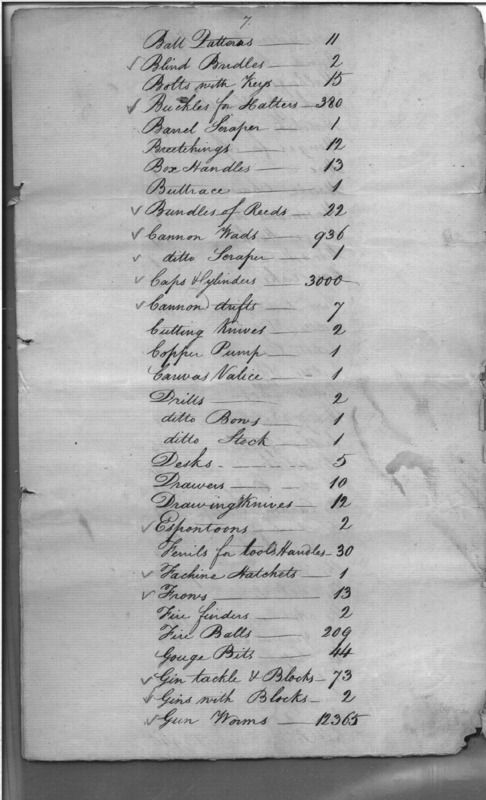 7.
Ball Patterns — 11
✓ Blind Bridles — 2
Bolts with Keys — 15
✓ Buckles for Halters — 380
Barrel Scraper — 1
Breetchings — 12
Box Handles — 13
Buttrace — 1
✓ Bundles of Reeds — 22
✓ Cannon Wads — 936
✓ ditto Scraper — 1
✓ Caps & Cylinders — 3000
✓ Cannon drifts — 7
Cutting Knives — 2
Copper Pump — 1
Canvas Valice — 1
Drills — 2
ditto Bows — 1
ditto Stock — 1
Desks — 5
Drawers — 10
Drawing Knives — 12
✓ Espontoons — 2
Ferrils for tools Handles — 30
✓ Fachine Hatchets — 1
✓ Frows — 13
Fire finders — 2
Fire Balls — 209
Gouge Bits — 44
✓ Gin tackle & Blocks — 73
✓ Gins with Blocks — 2
✓ Gun Worms — 12365